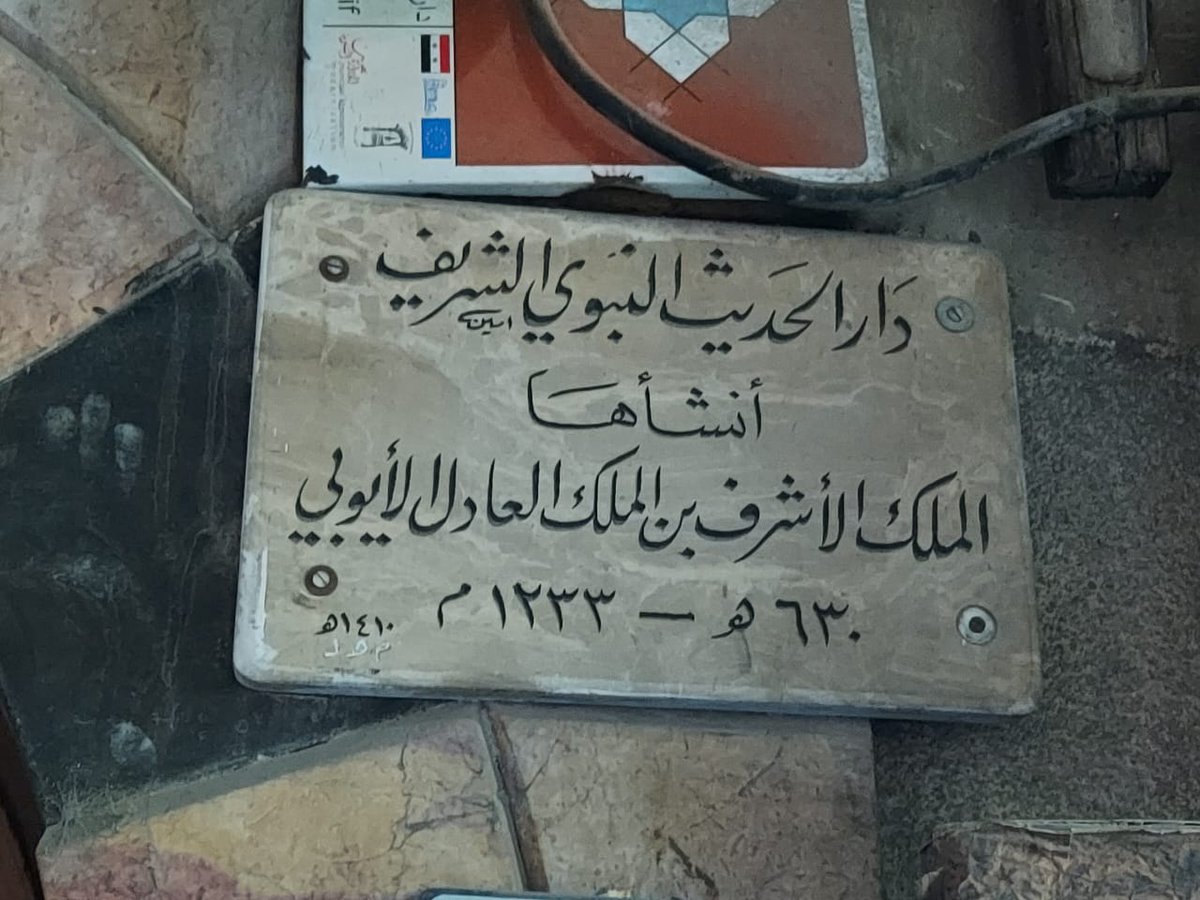 دَار الحَديث النبَوي الشريف
أنشأهَا
الملك الأشرف بن الملك العادل الأيوبي
٦٣٠ هـ — ١٢٣٣ م
١٤١٠هـ